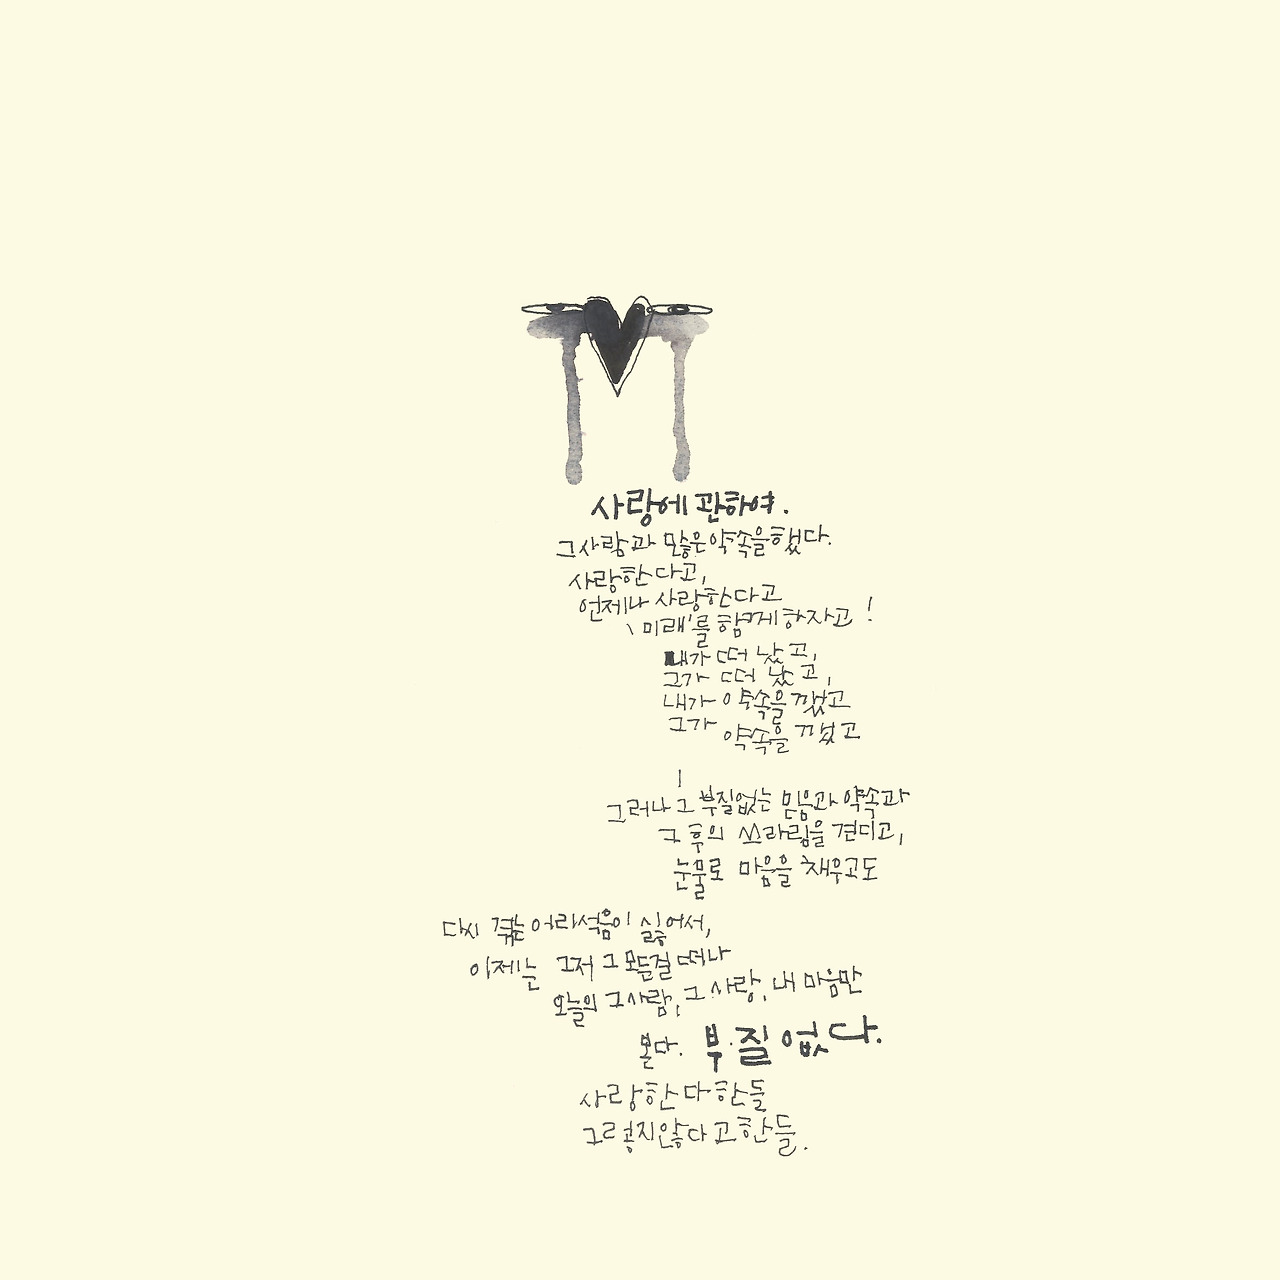 사랑에 관하여.
그사람과 많은약속을했다.
사랑한다고,
언제나 사랑한다고
'미래'를 함께하자고!
내가 떠났고,
그가 떠났고,
내가 약속을 깼고
그가 약속을 깼고
그러나 그 부질없는 믿음과 약속과
그 후의 쓰라림을 견디고,
눈물로 마음을 채우고도
다시 겪는 어리석음이 싫어서,
이제는 그저 그 모든걸 떠나
오늘의 그사람, 그 사랑, 내 마음만
본다. 부질없다.
사랑한다한들
그렇지않다고한들.